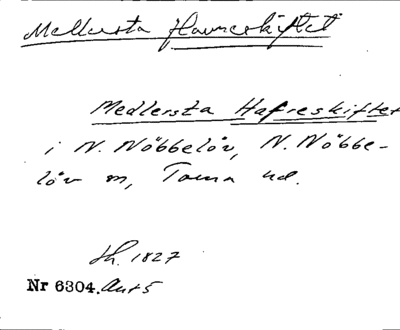 Mellersta Havreskiftet
Medlersta Hafreskiftet
i N. Nöbbelöv, N. Nöbbe-
löv sn, Torna hd.
sh. 1827
Nr 6304. Akt 5